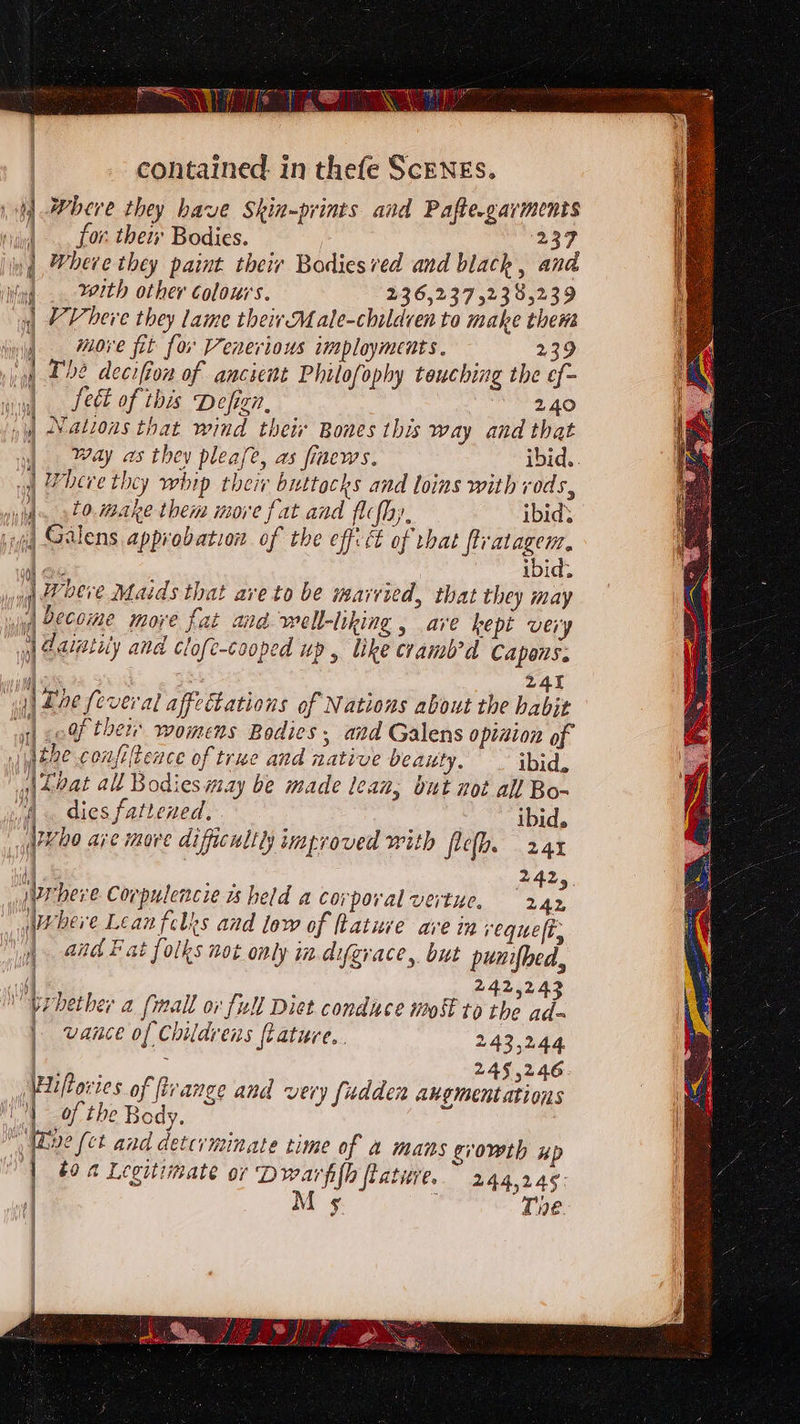 contained in theſe SCENES.
Where they have Skin-prints and Paſte-garments
for their Bodies. 237
Where they paint their Bodies red and black, and
with other colours. 236,237,238,239
VVhere they lame their Male-children to make them
more fit for Venerious imployments. 239
The deciſion of ancient Philoſophy touching the ef-
fect of this Deſign. 240
Nations that wind their Bones this way and that
way as they pleaſe, as ſinews. ibid.
Where they whip their buttocks and loins with rods,
to make them more fat and fleſhy. ibid.
Galens approbation of the effect of that ſtratagem.
ibid.
Where Maids that are to be married, that they may
become more fat and well-liking, are kept very
daintily and cloſe-cooped up, like cramb'd Capons.
241
The ſeveral affectations of Nations about the habit
of their womens Bodies, and Galens opinion of
the conſiſtence of true and native beauty. ibid.
That all Bodies may be made lean, but not all Bo-
dies fattened. ibid.
Who are more difficultly improved with fleſh. 241
242,
Where Corpulencie is held a corporal vertue. 242
Where Lean folks and low of ſtature are in requeſt,
and Fat folks not only in diſgrace, but puniſhed,
242,243
Whether a ſmall or full Diet conduce moſt to the ad-
vance of Childrens ſtature. 243,244
245,246
Hiſtories of ſtrange and very ſudden augmentations
of the Body.
The ſet and determinate time of a mans growth up
to a Legitimate or Dwarfiſh ſtature. 244,245
M 5 The